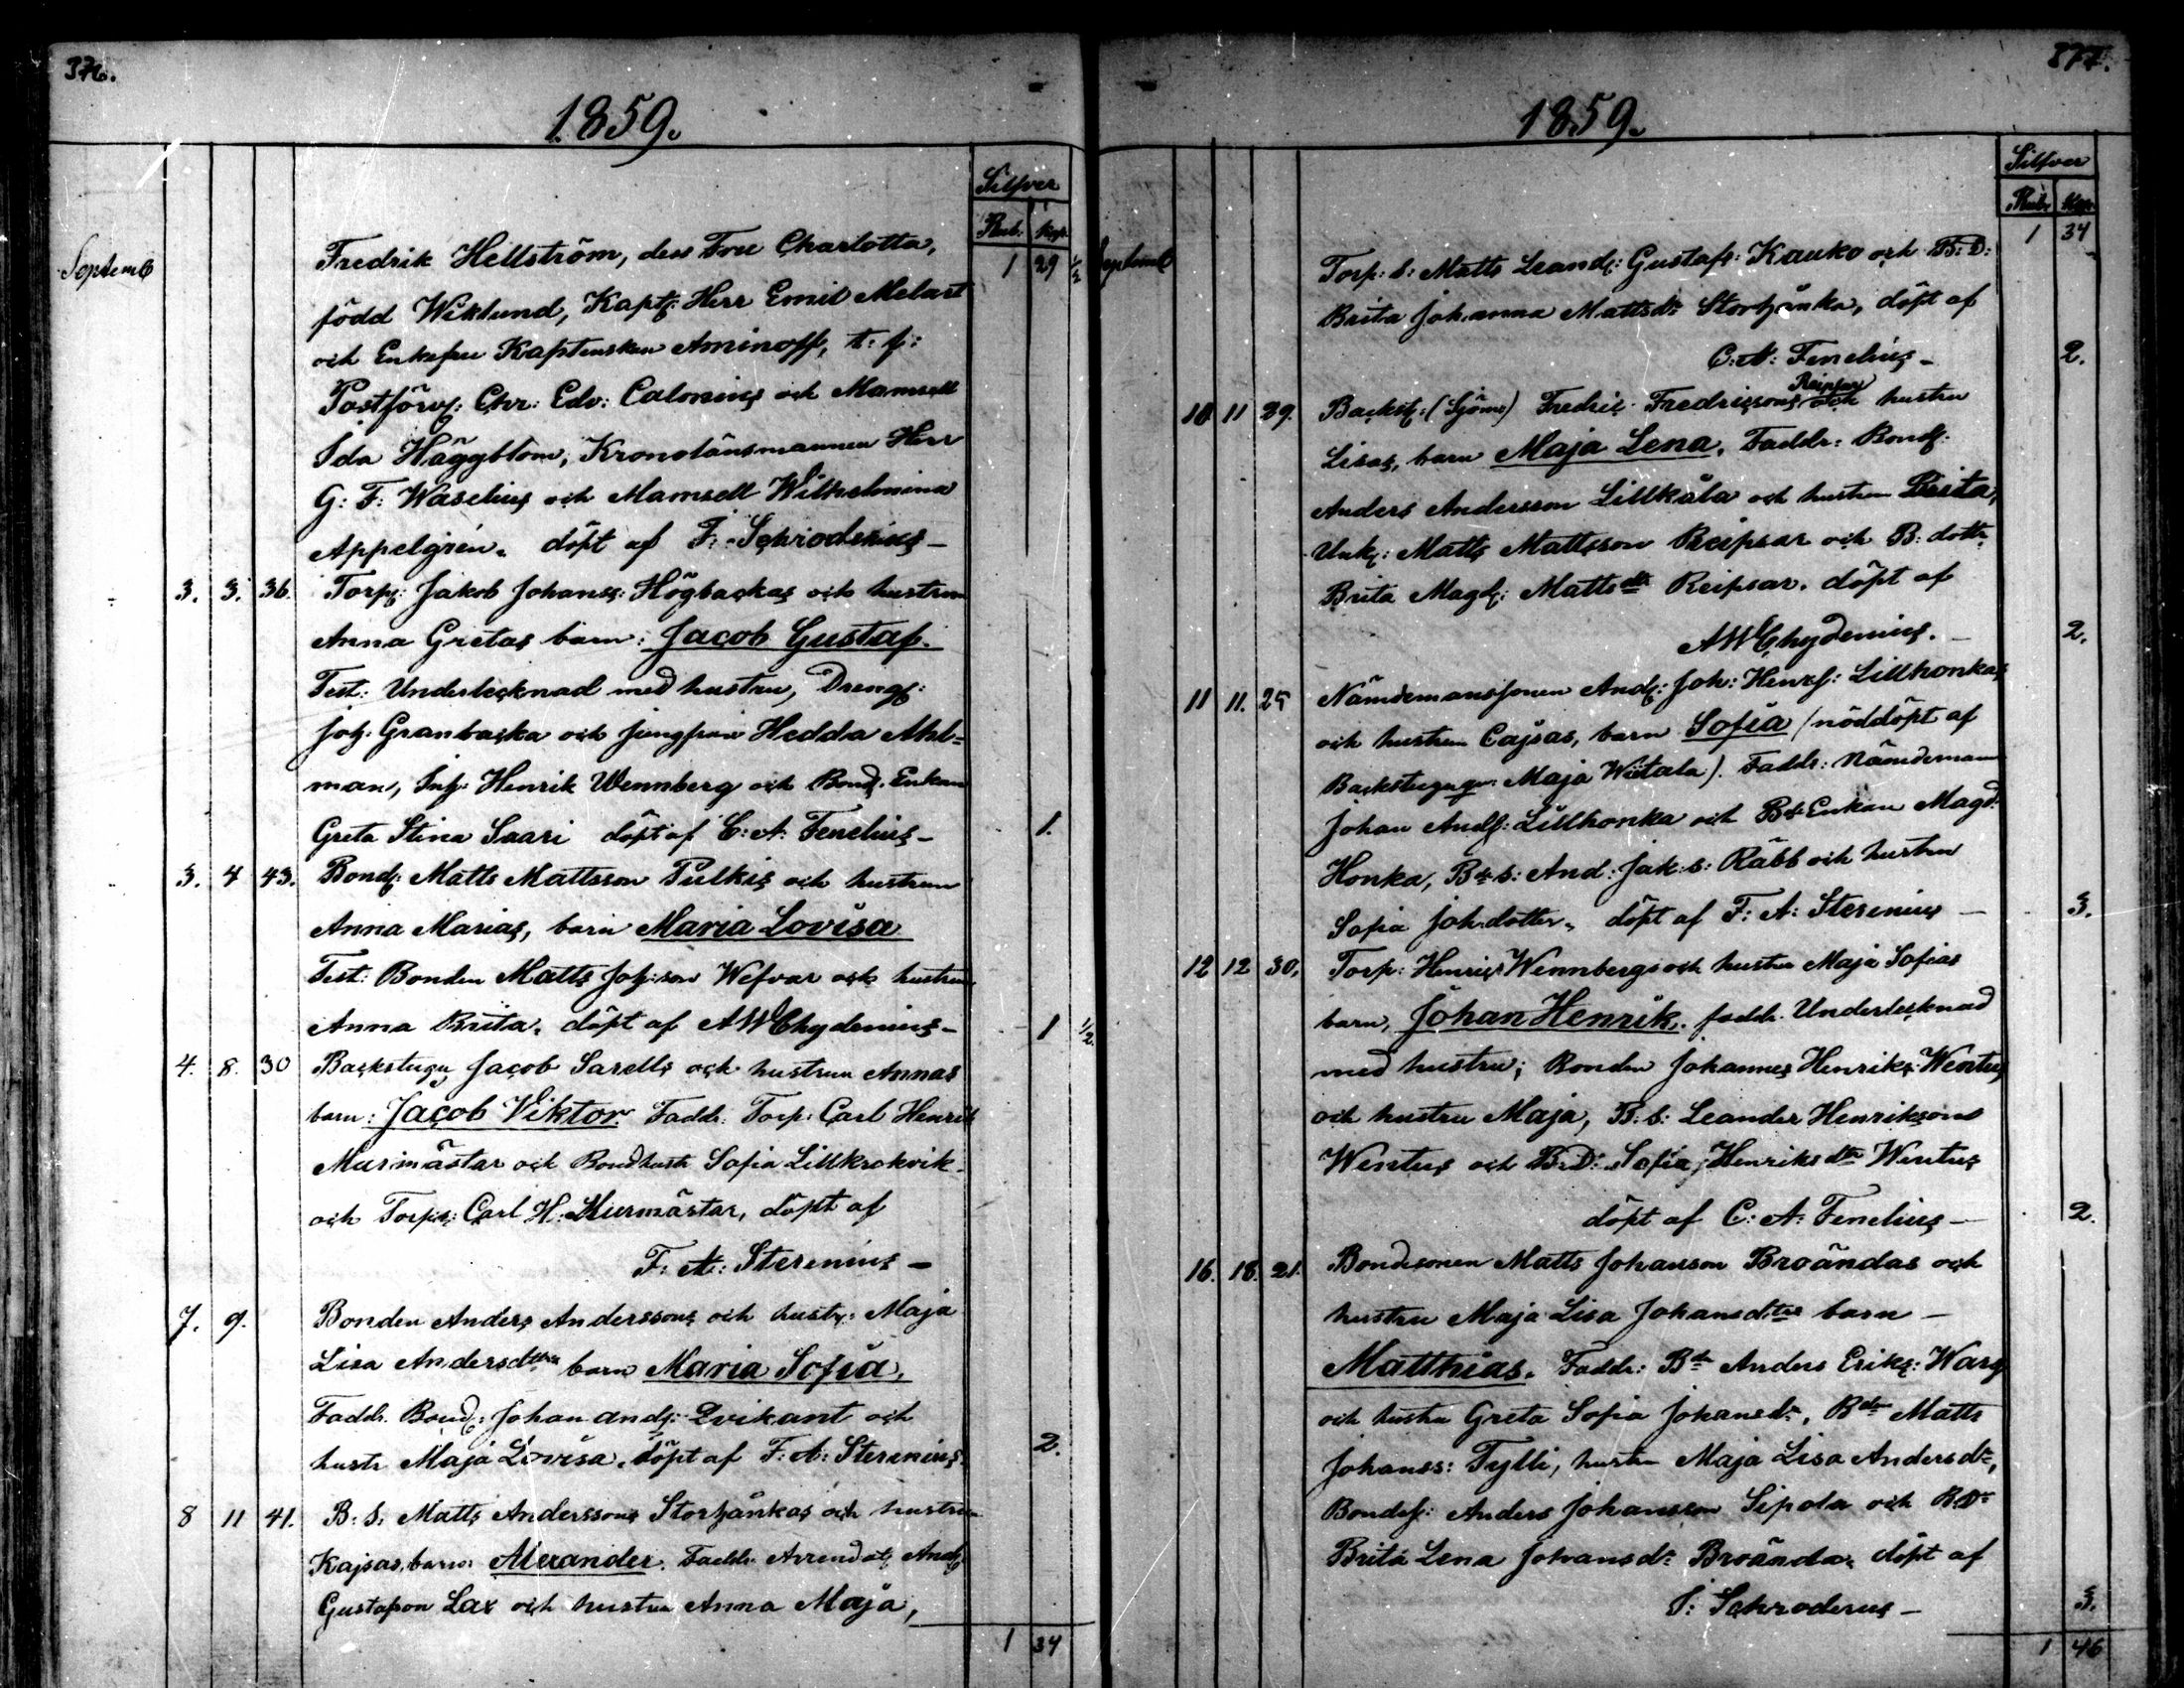 376.
1859.
Silfver
Rub. Kop.
Septemb
Fredrik Hellström, dess Fru Charlotta, 1 29 1/2
född Wiklund, Kapt: Herr Emil Melart
och Enkefru Kaptenskan Aminoff, t: f:
Postförv: Chr: Edv: Calonius och Mamsell
Ida Häggblom, Kronolänsmannen Herr
G: F: Waselius och Mamsell Wilhelmina
Appelgrén. döpt af F: Schroderius –
3. 3. 36. Torp: Jakob Johanss: Högbackas och hustrun
Anna Gretas barn: Jacob Gustaf.
Test: Undertecknad med hustru, Dreng:
Joh. Granbacka och jungfrun Hedda Ahl=
man, Inh: Henrik Wennberg och Bond. Enkan
Greta Stina Saari döpt af C: A: Fenelius – 1.
3. 4 43. Bond: Matts Mattsson Pulkis och hustrun
Anna Marias, barn Maria Lovisa
Test: Bonden Matts Joh:son Wefvar och hustrun
Anna Brita. döpt af AWChydenius – 1 1/2.
4. 8. 30 Backstugu Jacob Sarells och hustrun Annas
barn: Jacob Viktor. Faddr: Torp: Carl Henrik
Murmästar och Bondhustr Sofia Lillkrokvik
och Torps: Carl H: Murmästar, döpt af
F: A: Sterenius –
7. 9. Bonden Anders Anderssons och hustr: Maja
Lisa Andersdttrs barn Maria Sofia.
Faddr. Bond: Johan And: Qvikant och
hustr Maja Lovisa. döpt af F: A: Sterenius. 2.
8 11 41. B: S: Matts Anderssons Storhånkas och hustrun
Kajsas, barn: Alexander. Faddr. Arrendat: And:
Gustafson Lax och hustru Anna Maja,
1 34
377.
1859.
Silfver
Rub. Kop.
1 34
Septemb
Torp: S: Matts Leand: Gustafs: Kauko och B: D:
Brita Johanna Mattsdr Storhånka, döpt af
C: A: Fenelius – 2.
Reipsar
10 11 29. Backst: (Sjöm:) Fredric Fredricssons och hustru
Lisas, barn Maja Lena. Faddr: Bond:
Anders Andersson Lillkåla och hustrun Brita,
Unk: Matts Mattsson Reipsar och B: dottr
Brita Magd: Mattsdr Reipsar. döpt af
AWChydenius. – 2.
11 11. 25 Nämdemansonen And: Joh: Henrs: Lillhonkas
och hustrun Cajsas, barn Sofia (nöddöpt af
Backstugugu: Maja Wiitala). Faddr: Nämdeman
Johan Ands: Lillhonka och Bde Enkan Magd:
Honka, Bde s: And: Jak: s: Rabb och hustru
Sofia Joh.dotter. döpt af F: A: Sterenius – 3.
12 12 30. Torp: Henrics Wennbergs och hustru Maja Sofias
barn, Johan Henrik. faddr. Undertecknad
med hustru; Bonden Johannes Henriks: Wentus
och hustru Maja, B: S: Leander Henriksons
Wentus och B: D: Sofia Henriksdtr Wentus
döpt af C: A: Fenelius – 2.
16. 18. 21. Bondesonen Matts Johansson Broändas och
hustru Maja Lisa Johansdtrs barn –
Matthias. Faddr: Bde Anders Eriks: Warg
och hustru Greta Sofia Johansdr, Bden Matts
Johanss: Tylli, hustru Maja Lisa Andersdr,
Bondes: Anders Johansson Sipola och B:Dr
Brita Lena Johansdr Broända. döpt af
F: Schroderus – 3.
1 46